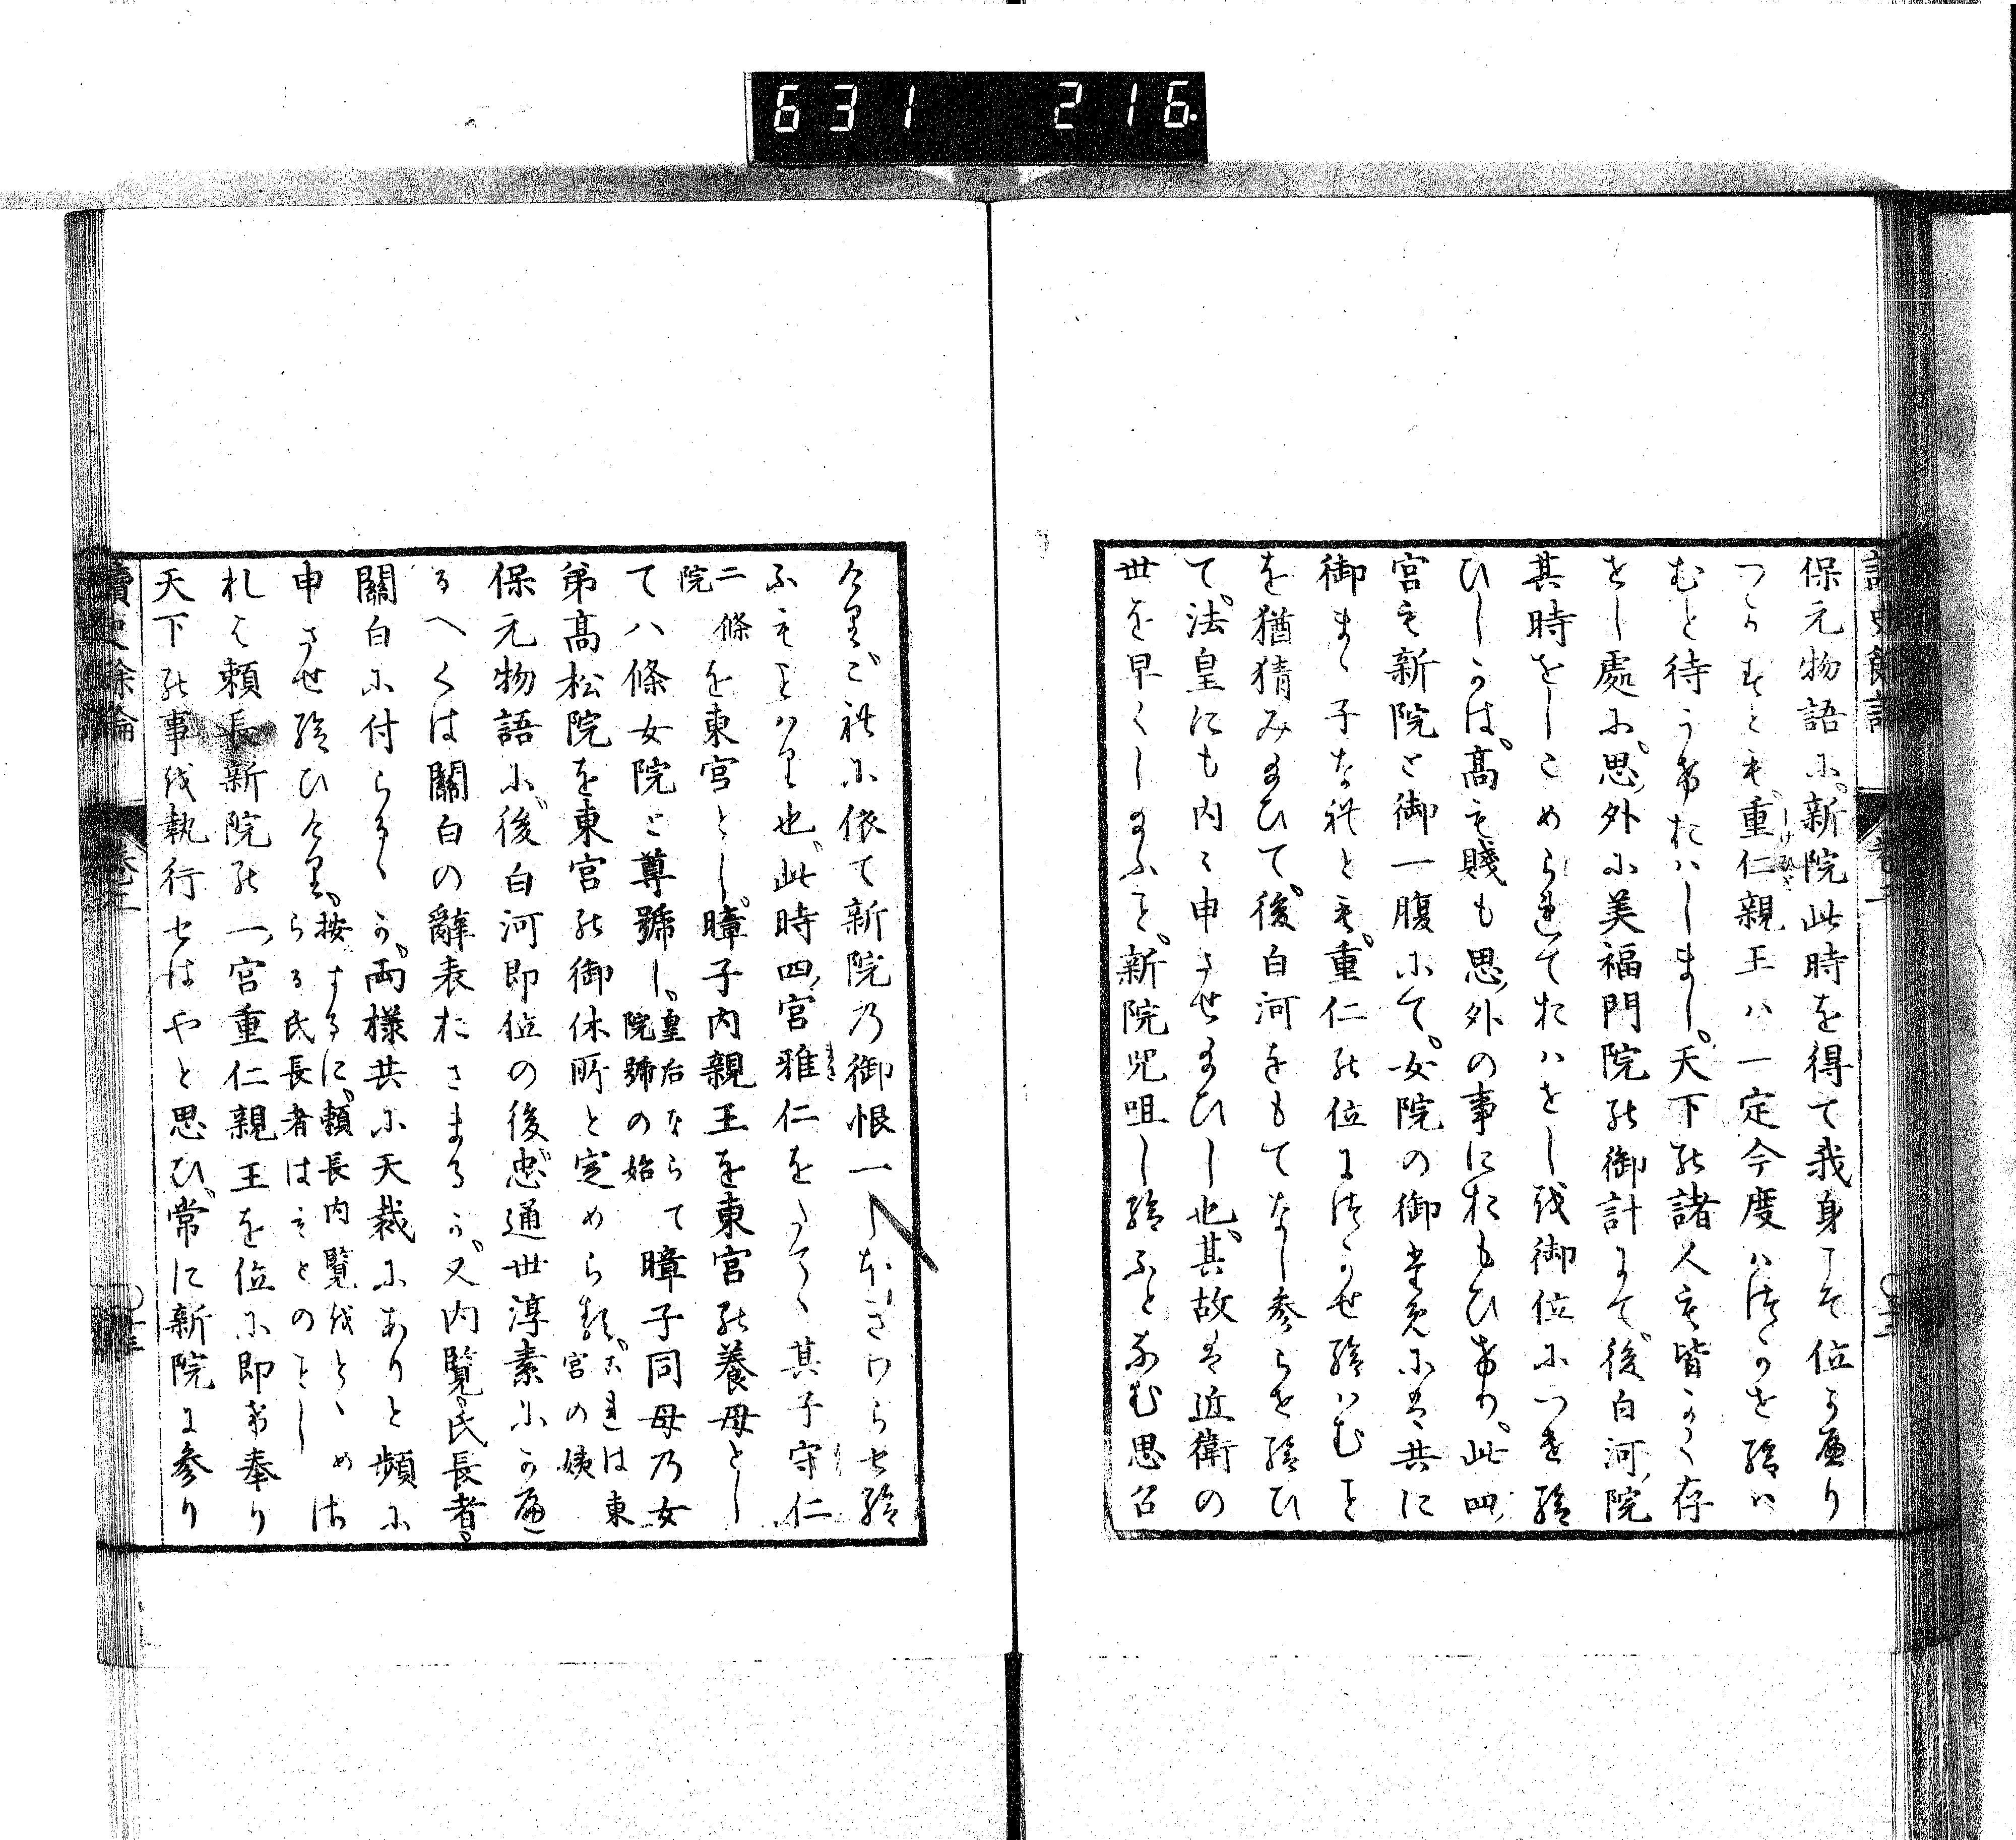 631 216.
保元物語に、新院此時を得て我身こそ位に還り
つかずとも、重仁親王ハ一定今度ハ位につかせ給ハ
むと待うけおハしまし。天下の諸人も皆かく存
せし處に、思外に美福門院の御計にて、後白河院、
其時をしこめられておハせしを御位につき給
ひしかは、高も賤も思外の事におもひけり。此四
宮も新院と御一腹にて、女院の御為には共に
御まゝ子なれとも、重仁の位につかせ給ハむこと
を猶猜みまひて、後白河をもてなし参らせ給ひ
て、法皇にも内々申させまひし也。其故は近衛の
世を早くしまふこと、新院呪咀し給ふとなむ思召
けり。これに依て新院乃御恨一しほまさらせ給
ふもことハり也。此時四宮雅仁をたてゝ其子守仁
二條院を東宮とし、暲子内親王を東宮の養母とし
て八條女院と尊號し、皇后ならて院號の始暲子同母乃女
弟高松院を東宮の御休所と定めらる。これは東宮の姨
保元物語に、後白河即位の後忠通世淳素にかへ
るへくは關白の辭表おさまるか、又内覧氏長者、
關白に付らるゝか、両様共に天裁にありと頻に
申させ給ひけり。按するに、頼長内覧をとゝめられらる氏長者はもとのことし
れは頼長新院の一宮重仁親王を位に即け奉り
天下の事を執行せはやと思ひ、常に新院に参り
讀史餘論
卷之二